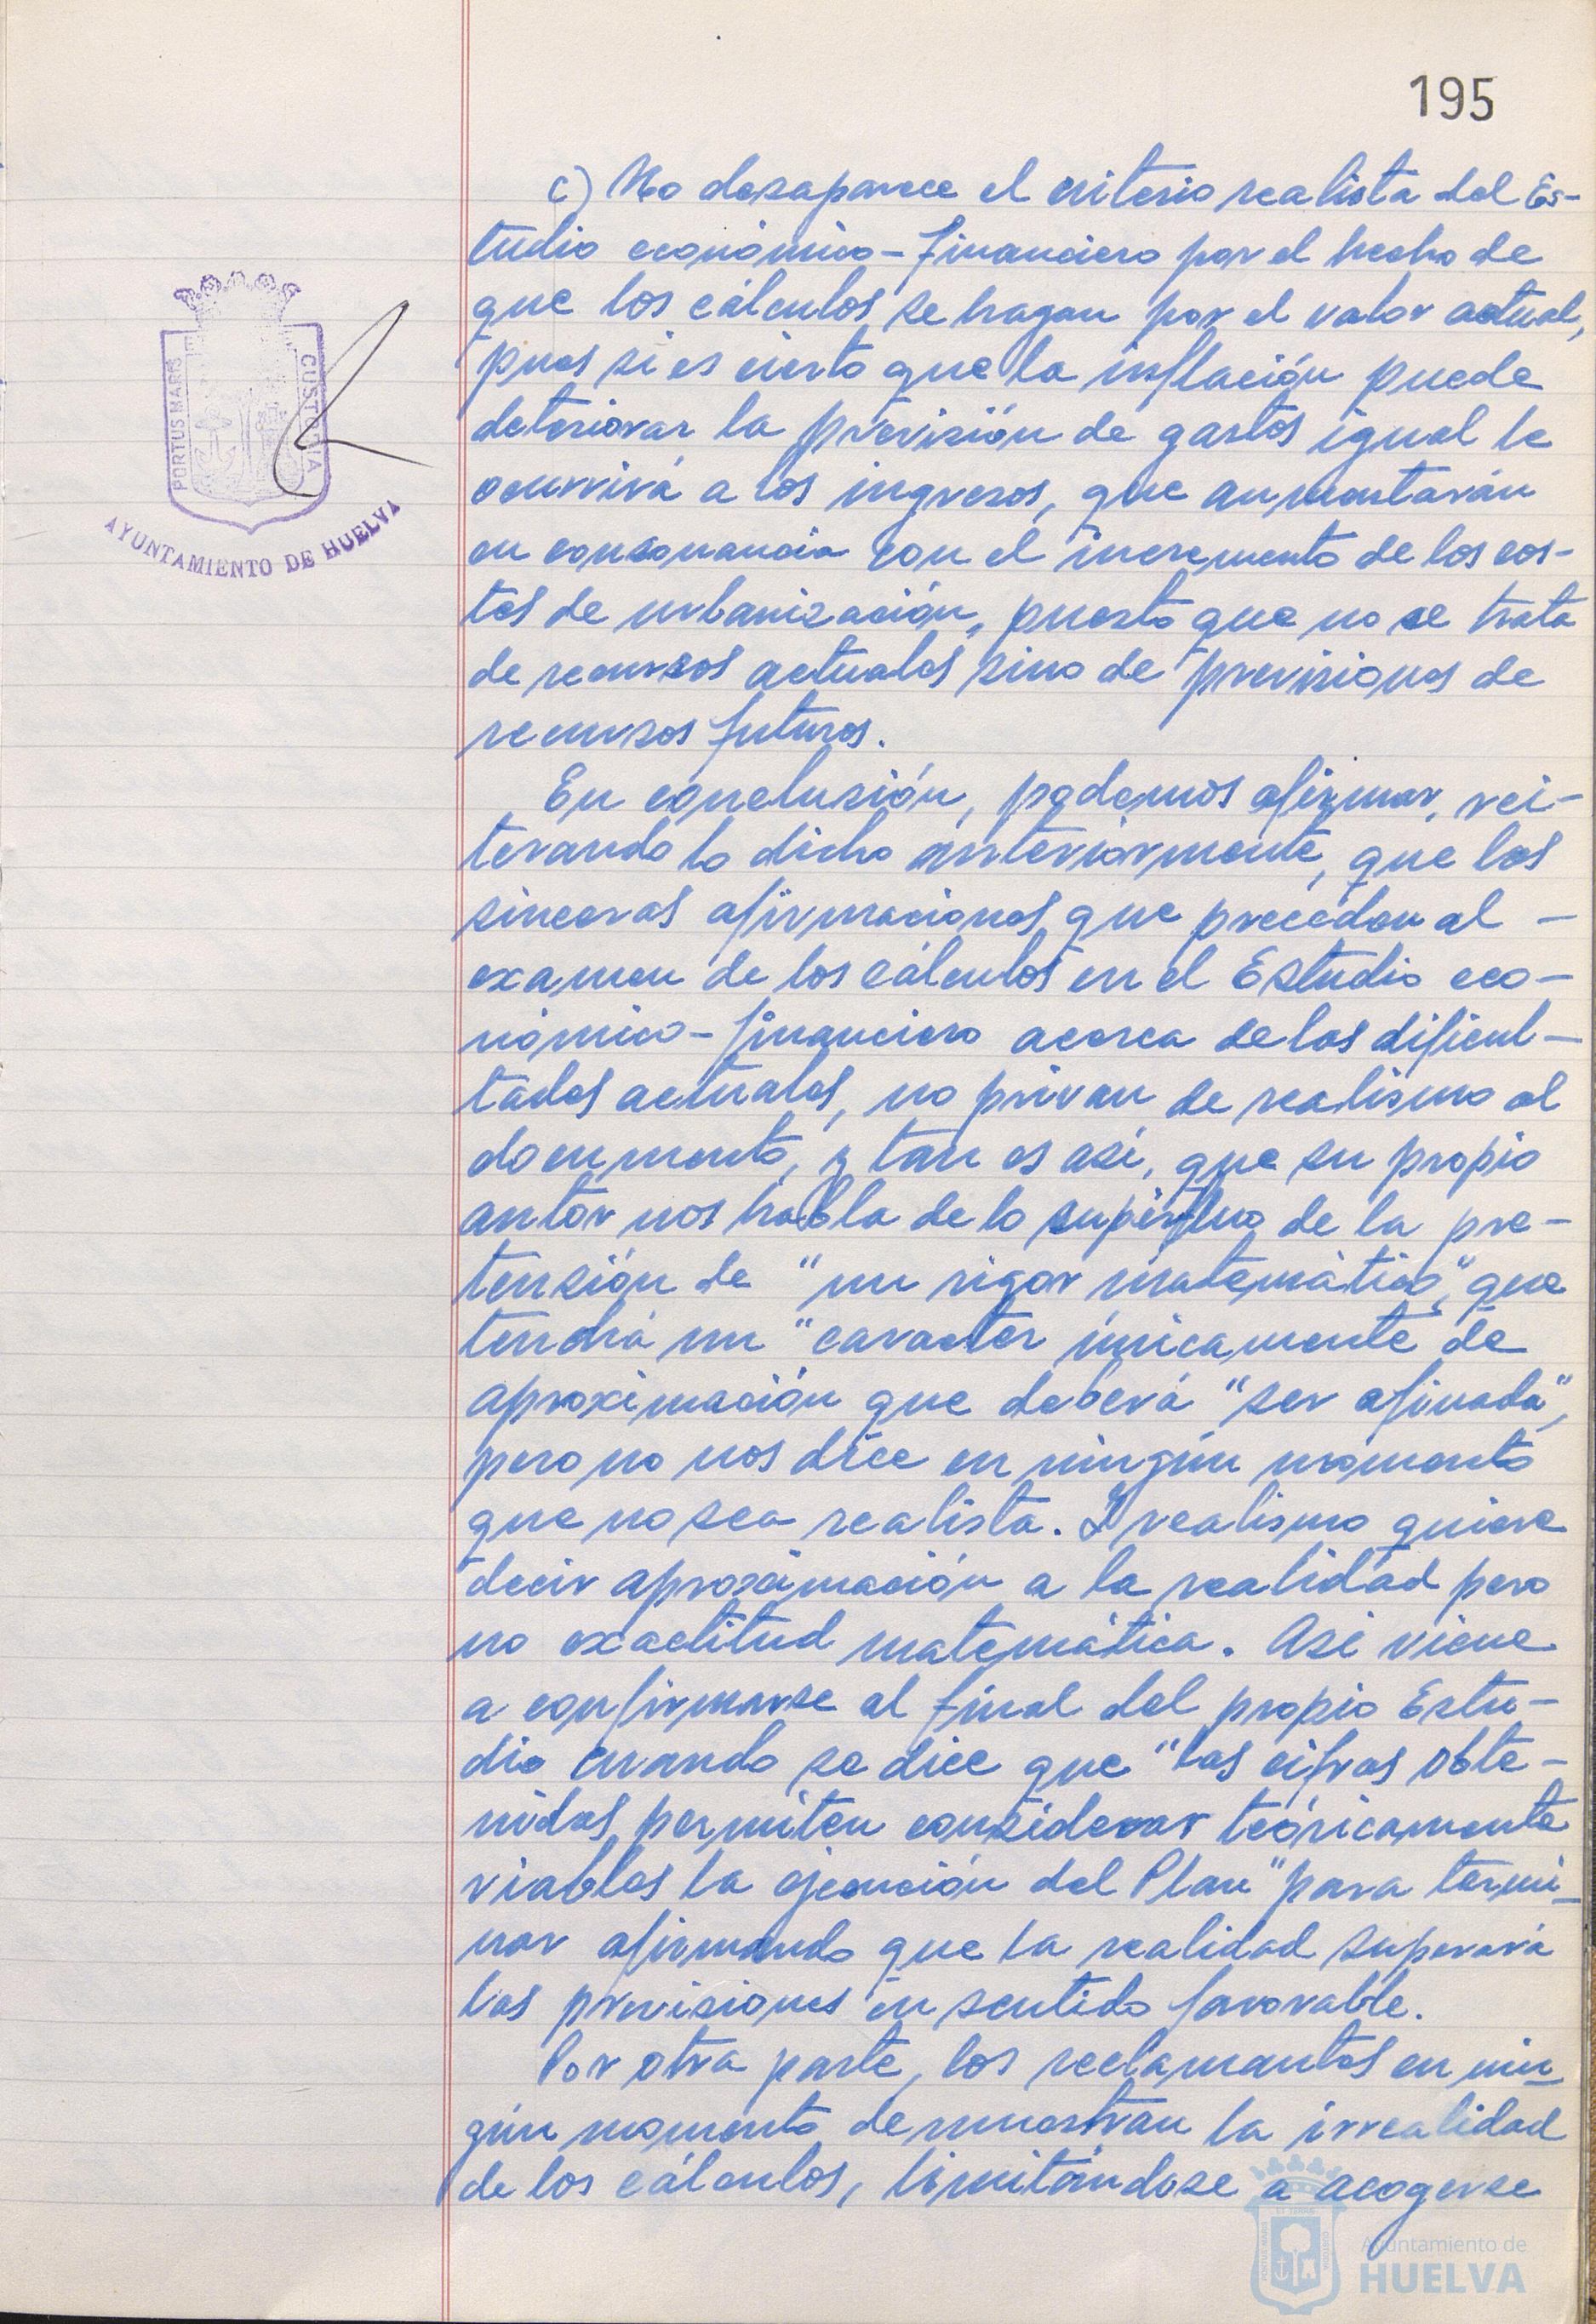 195
c) No desaparece el criterio realista del Es-
tudio económico-financiero por el hecho de
que los cálculos se hagan por el valor actual,
pues si es cierto que la inflación puede
deteriorar la previsión de gastos igual le
ocurrirá a los ingresos, que aumentarán
en consonancia con el incremento de los cos-
tes de urbanización, puesto que no se trata
de recursos actuales sino de previsiones de
recursos futuros.
En conclusión, podemos afirmar, rei-
terando lo dicho anteriormente, que las
sinceras afirmaciones que preceden al -
examen de los cálculos en el Estudio eco-
nómico-financiero acerca de las dificul-
tades actuales, no privan de realismo al
documento, y tan es así, que su propio
autor nos habla de lo superfluo de la pre-
tensión de "un rigor matemático", que
tendrá un "caracter únicamente de
aproximación que deberá "ser afinada",
pero no nos dice en ningún momento
que no sea realista. Y realismo quiere
decir aproximación a la realidad pero
no exactitud matemática. Asi viene
a confirmarse al final del propio Estu-
dio cuando se dice que "las cifras obte-
nidas permiten considerar teóricamente
viables la ejecución del Plan" para termi-
nar afirmando que la realidad superará
las previsiones en sentido favorable.
Por otra parte, los reclamantes en nin-
gún momento demuestran la irrealidad
de los cálculos, limitándose a acogerse
PORTUS MARIS
CUSTODIA
AYUNTAMIENTO DE HUELVA
Ayuntamiento de
HUELVA